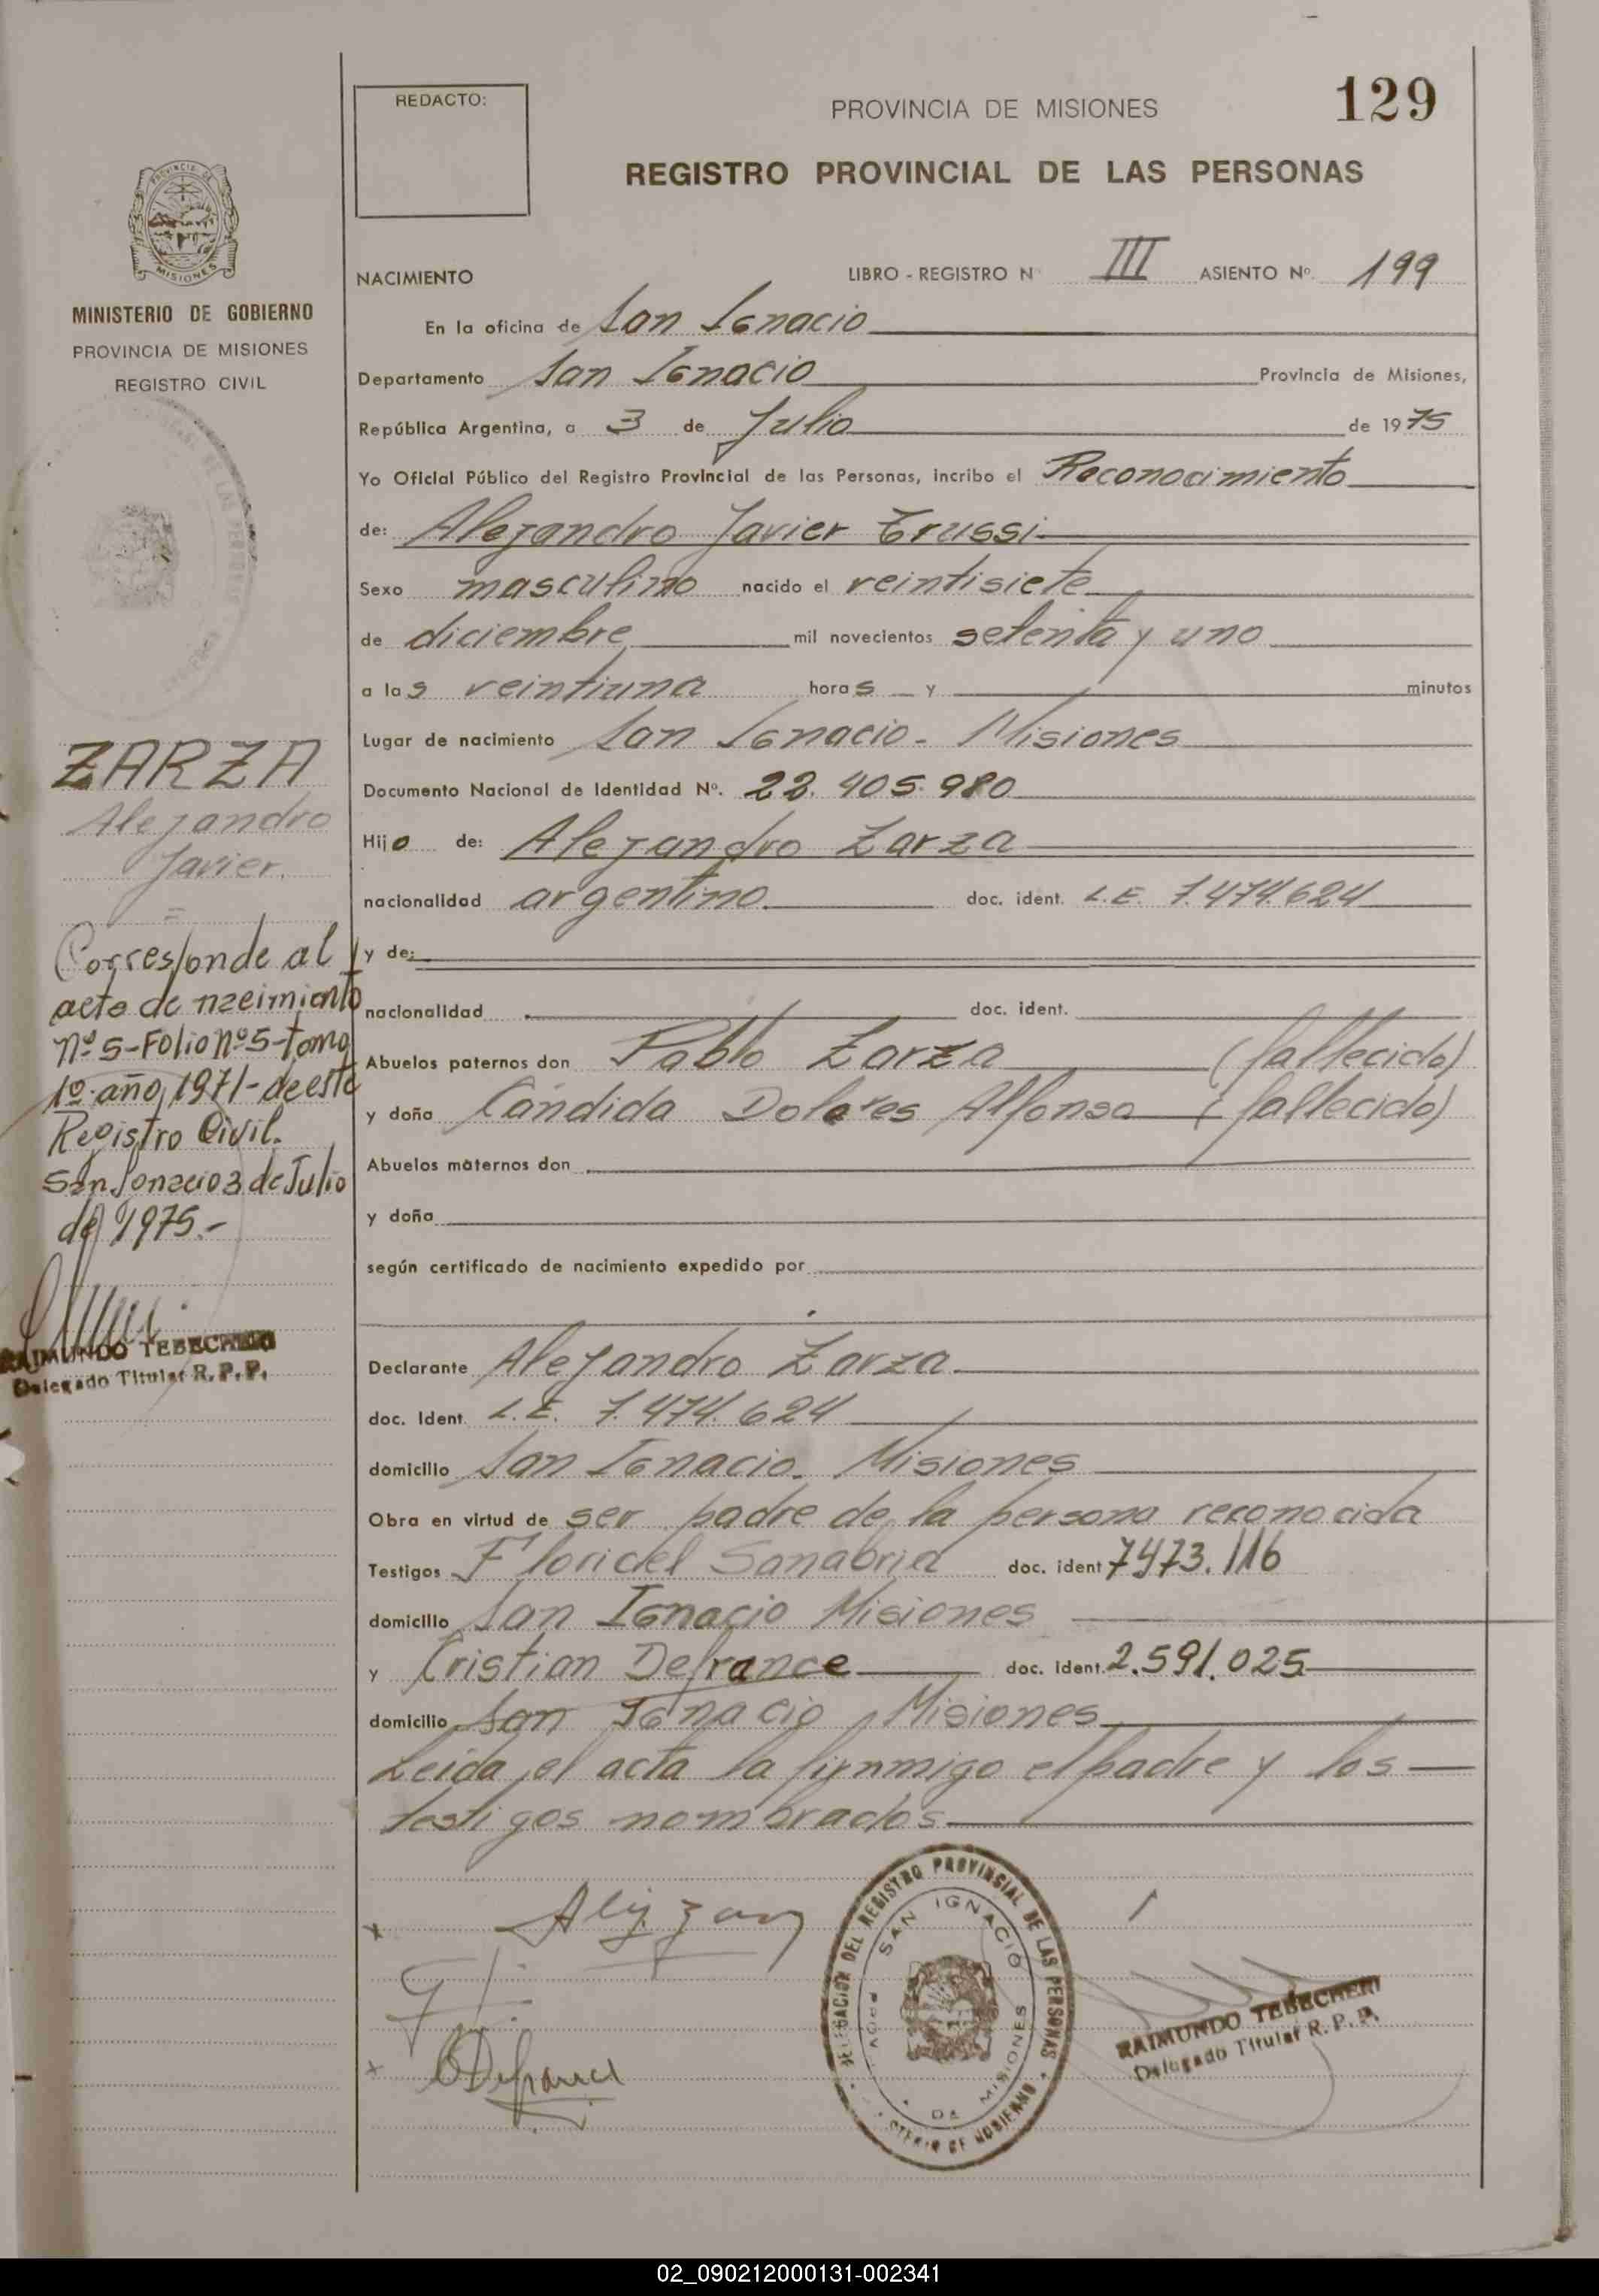 REDACTO:
PROVINCIA DE MISIONES
129
REGISTRO PROVINCIAL DE LAS PERSONAS
PROVINCIA DE
MISIONES
MINISTERIO DE GOBIERNO
PROVINCIA DE MISIONES
REGISTRO CIVIL
NACIMIENTO LIBRO - REGISTRO Nº III ASIENTO Nº. 199
En la oficina de San Ignacio
Departamento San Ignacio Provincia de Misiones,
República Argentina, a 3 de Julio de 1975
Yo Oficial Público del Registro Provincial de las Personas, incribo el Reconocimiento
de: Alejandro Javier Trussi
Sexo masculino nacido el veintisiete
de diciembre mil novecientos setenta y uno
a las veintiuna horas y minutos
Lugar de nacimiento San Ignacio - Misiones
Documento Nacional de Identidad Nº. 22.405.980
Hijo de: Alejandro Zarza
nacionalidad argentino doc. ident. L.E. 7.474.624
y de:
nacionalidad doc. ident.
Abuelos paternos don Pablo Zarza (fallecido)
y doña Cándida Dolores Alfonso (fallecido)
Abuelos maternos don
y doña
según certificado de nacimiento expedido por
Declarante Alejandro Zarza
doc. Ident. L.E. 7.474.624
domicilio San Ignacio. Misiones
Obra en virtud de ser padre de la persona reconocida
Testigos Floridel Sanabria doc. ident 7473.116
domicilio San Ignacio Misiones
y Cristian Defrance doc. ident. 2.591.025
domicilio San Ignacio Misiones
Leida el acta la firnmigo el padre y los
testigos nombrados
ZARZA
Alejandro
Javier.
Corresponde al
acta de nacimiento
nº 5-Folio nº 5-tomo
1º año, 1971-de este
Registro Civil.
San Ignacio 3 de Julio
de 1975.-
RAIMUNDO TEBECHERI
Delegado Titular R. P. P.
DELEGACION DEL REGISTRO PROVINCIAL DE LAS PERSONAS
SAN IGNACIO
DE MISIONES
RAIMUNDO TEBECHERI
Delegado Titular R. P. P.
02_090212000131-002341